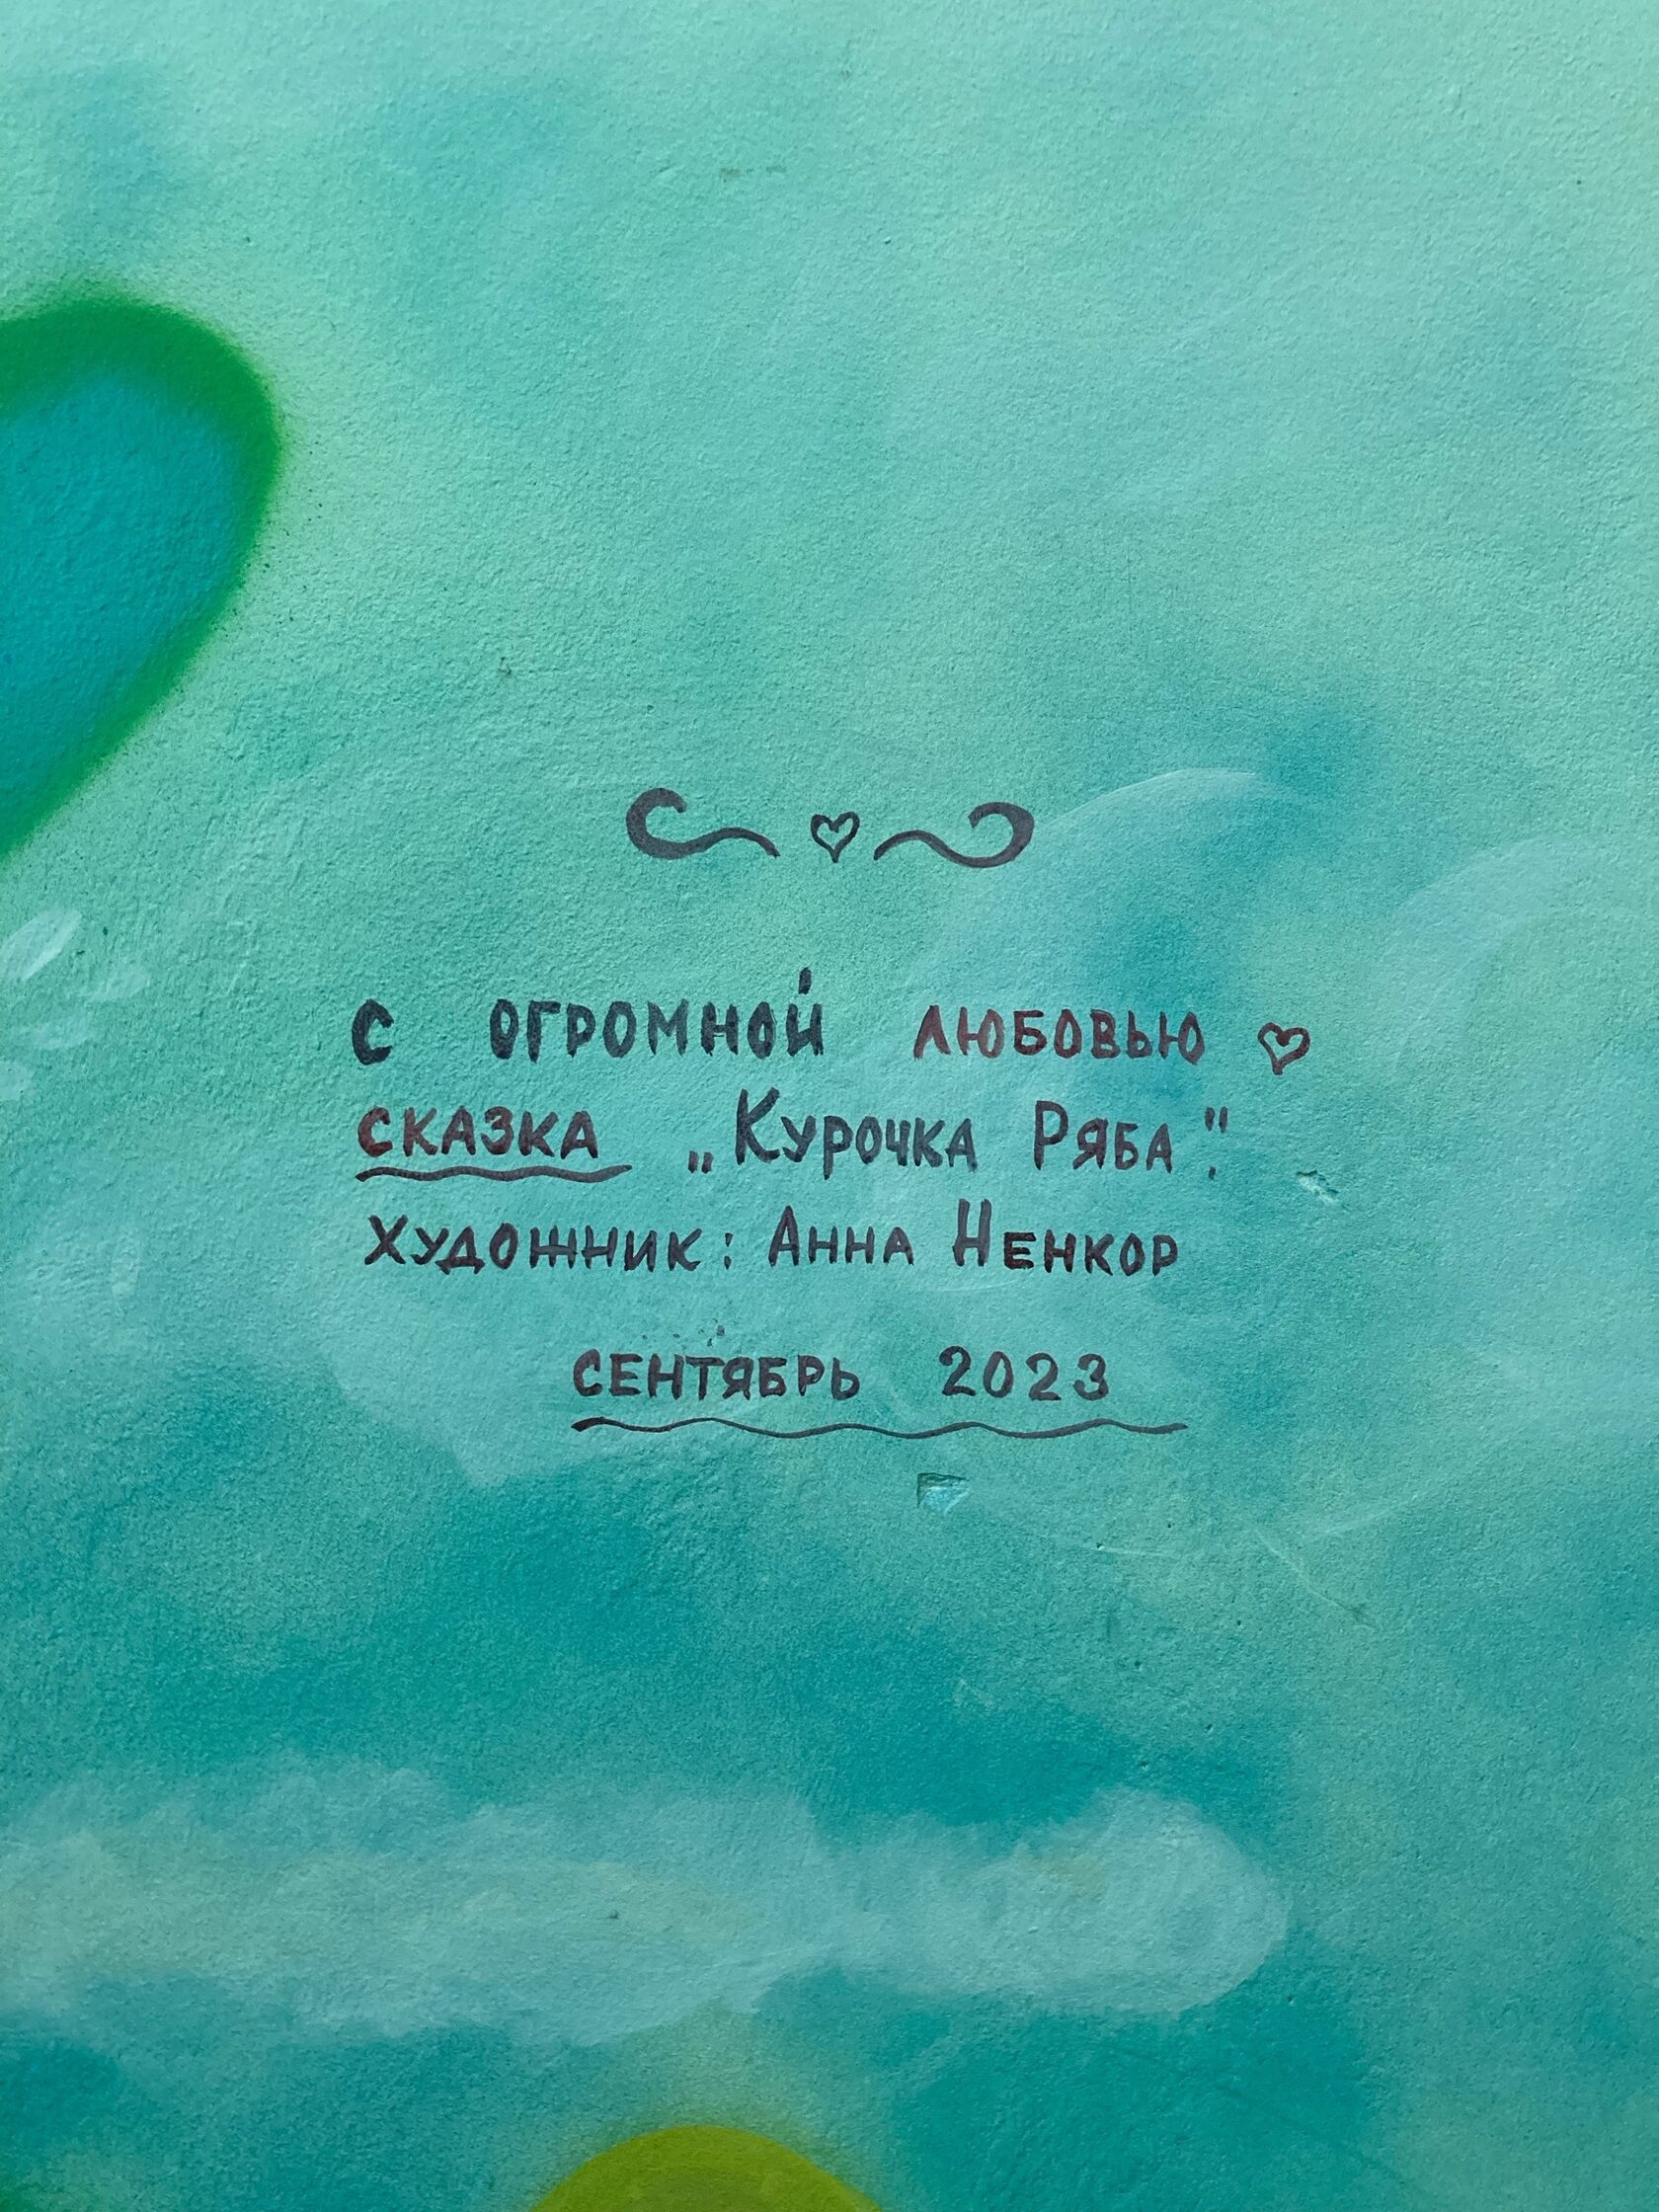 С ОГРОМНОЙ ЛЮБОВЬЮ ♡
СКАЗКА „КУРОЧКА РЯБА".
ХУДОЖНИК: АННА НЕНКОР
СЕНТЯБРЬ 2023